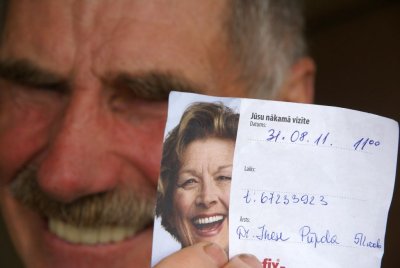 Jūsu nākamā vizīte
Datums:
31.08.11. 11⁰⁰
Laiks:
t. 67233923
Ārsts:
Dr. Inese
fix-